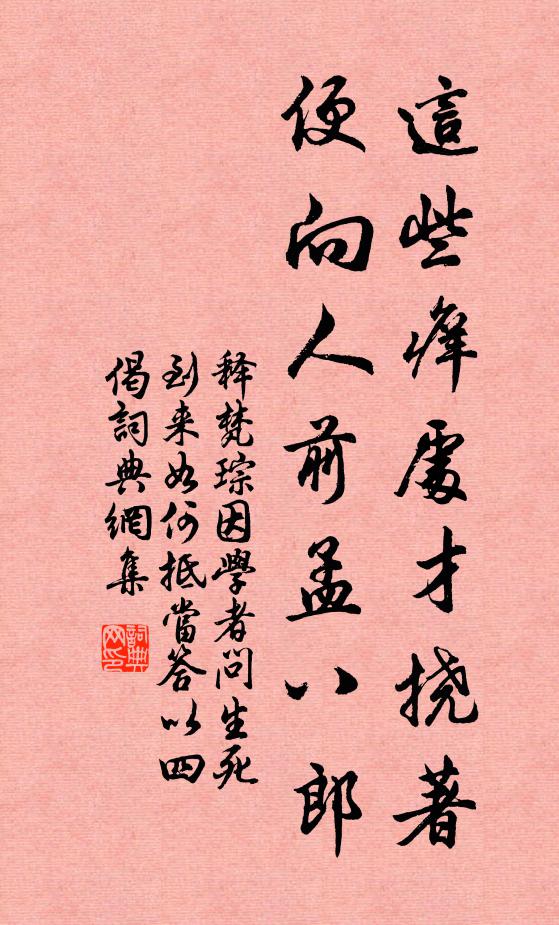 這些癢處才撓著
便向人前孟八郎
释梵琮因學者問生死
到来如何抵當答以四
偈詞典網集
詞典
网印